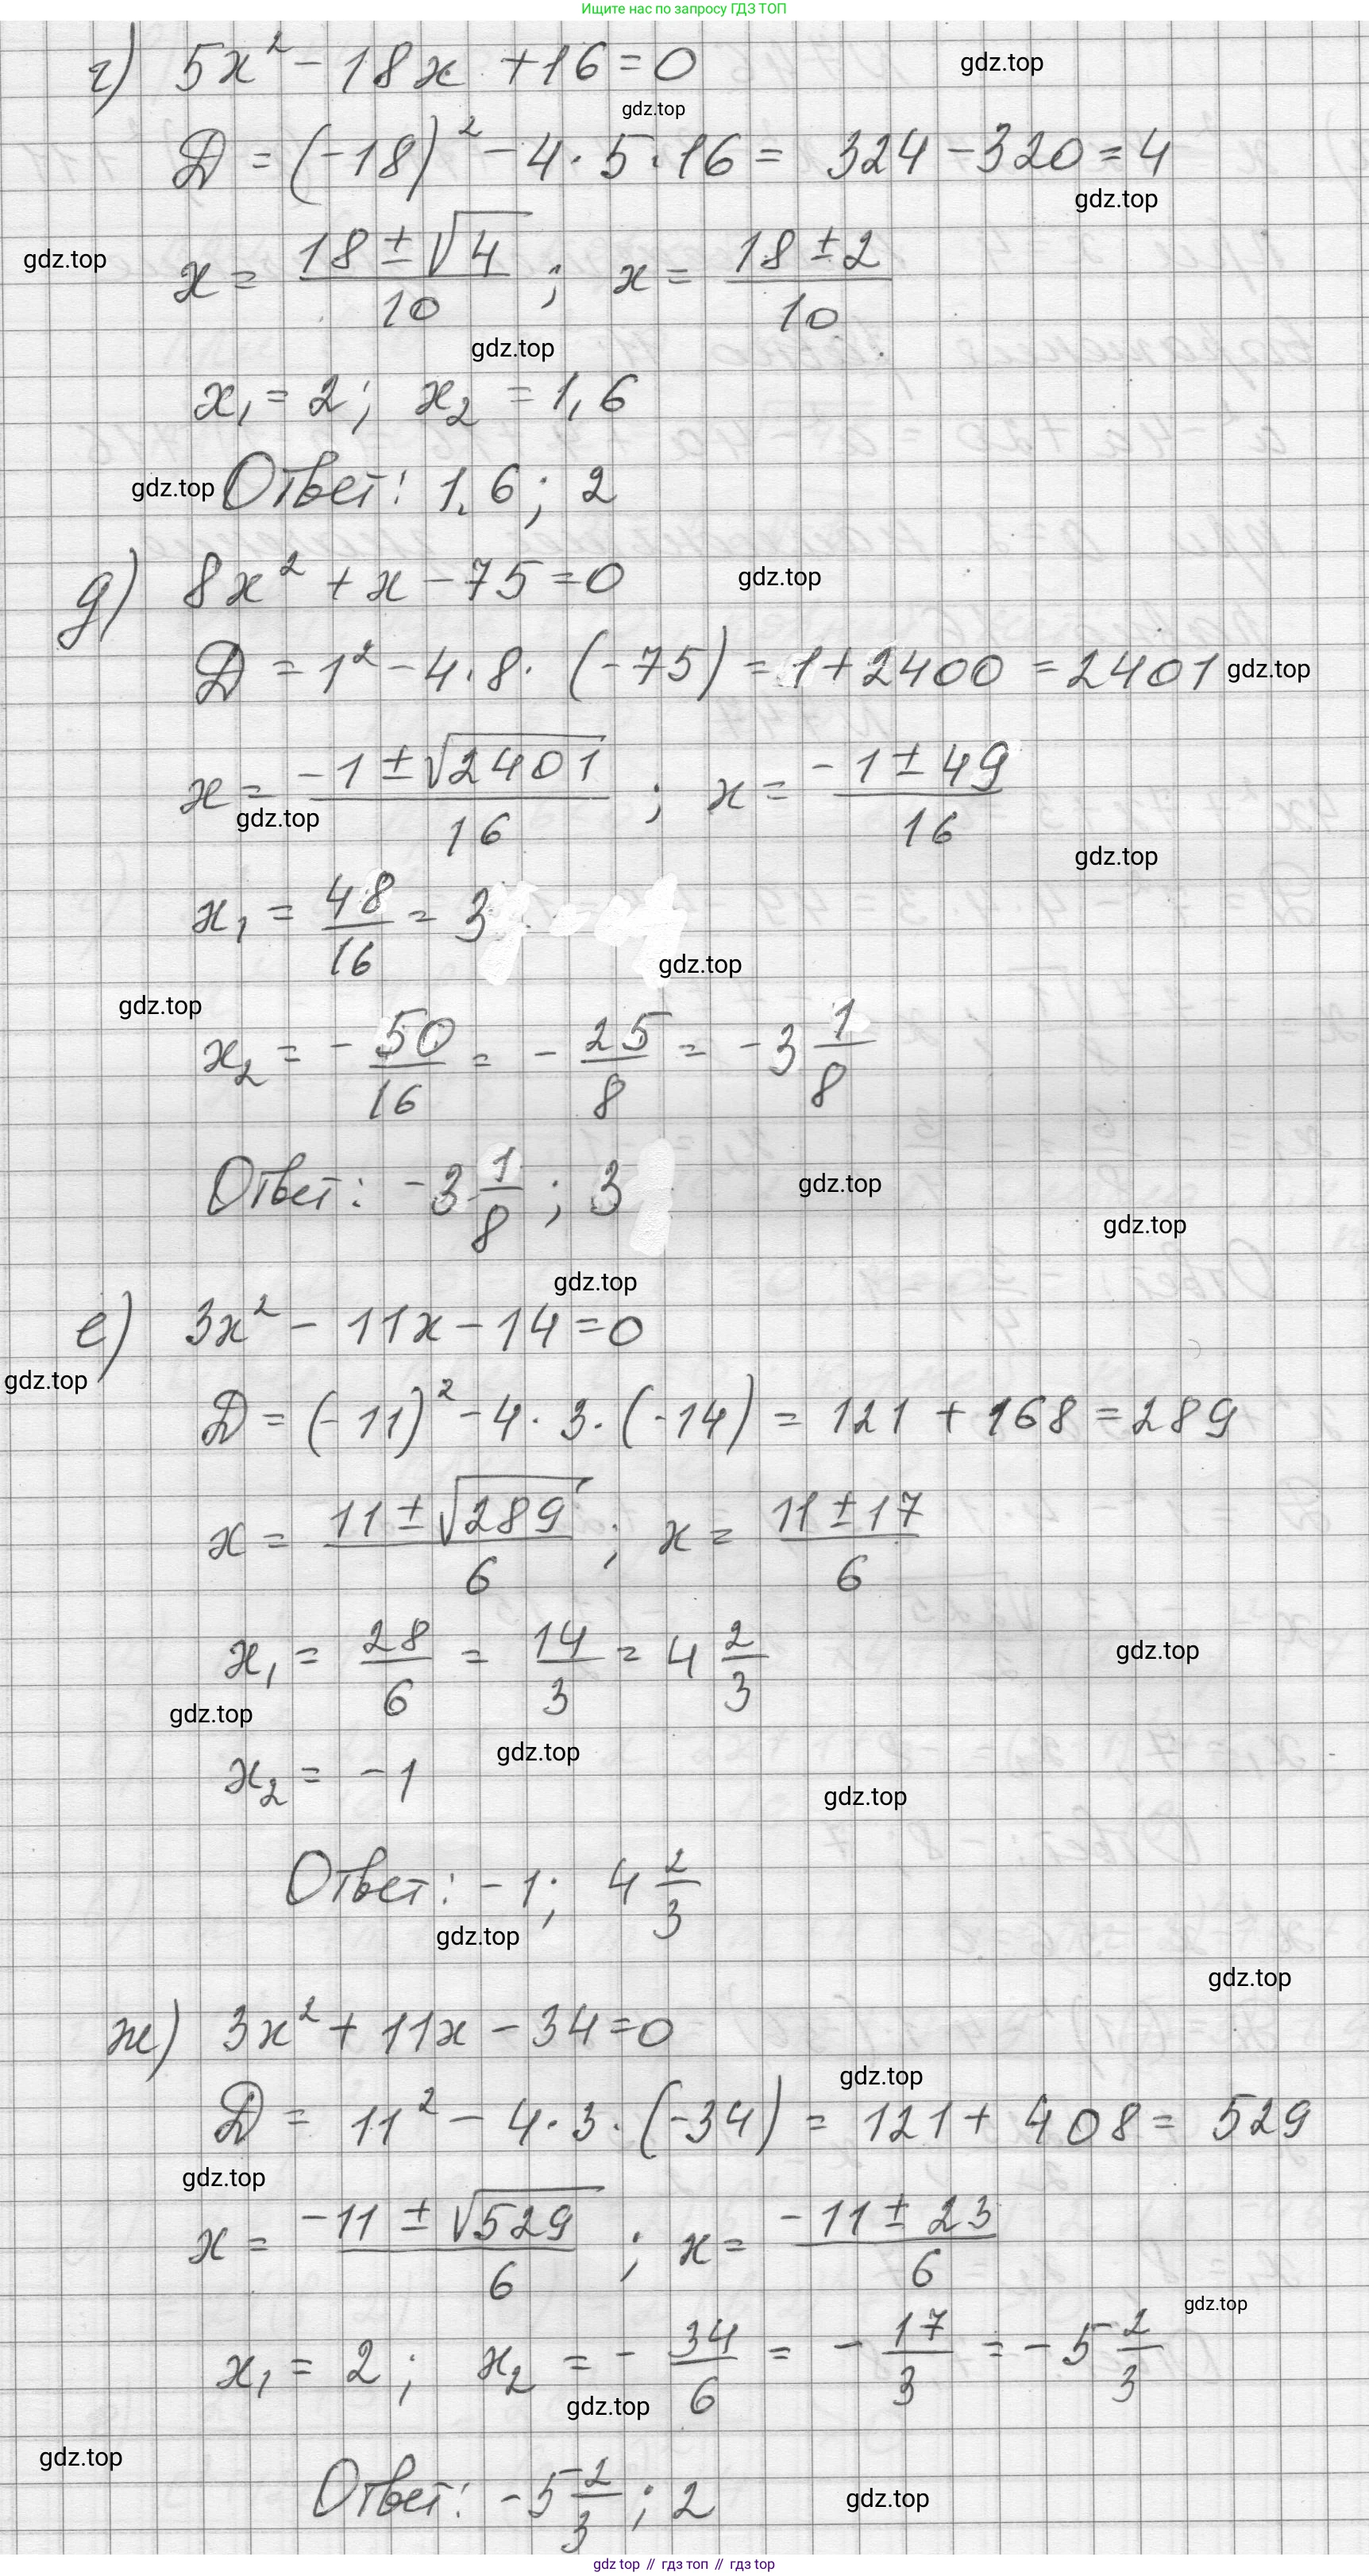 Ищите нас по запросу ГДЗ ТОП
г) 5x² - 18x + 16 = 0
gdz.top
gdz.top
D = (-18)² - 4 · 5 · 16 = 324 - 320 = 4
gdz.top
gdz.top
x = (18 ± √4)/10 ; x = (18 ± 2)/10
gdz.top
x₁ = 2; x₂ = 1,6
gdz.top
Ответ: 1,6; 2
д) 8x² + x - 75 = 0
gdz.top
D = 1² - 4 · 8 · (-75) = 1 + 2400 = 2401
gdz.top
x = (-1 ± √2401)/16 ; x = (-1 ± 49)/16
gdz.top
gdz.top
x₁ = 48/16 = 3
gdz.top
gdz.top
x₂ = - 50/16 = - 25/8 = -3 1/8
Ответ: -3 1/8 ; 3
gdz.top
gdz.top
gdz.top
е) 3x² - 11x - 14 = 0
gdz.top
D = (-11)² - 4 · 3 · (-14) = 121 + 168 = 289
x = (11 ± √289)/6 ; x = (11 ± 17)/6
x₁ = 28/6 = 14/3 = 4 2/3
gdz.top
gdz.top
gdz.top
x₂ = -1
gdz.top
Ответ: -1; 4 2/3
gdz.top
gdz.top
ж) 3x² + 11x - 34 = 0
gdz.top
D = 11² - 4 · 3 · (-34) = 121 + 408 = 529
gdz.top
x = (-11 ± √529)/6 ; x = (-11 ± 23)/6
gdz.top
x₁ = 2; x₂ = - 34/6 = - 17/3 = -5 2/3
gdz.top
gdz.top
Ответ: -5 2/3 ; 2
gdz.top
gdz top // гдз топ // гдз top